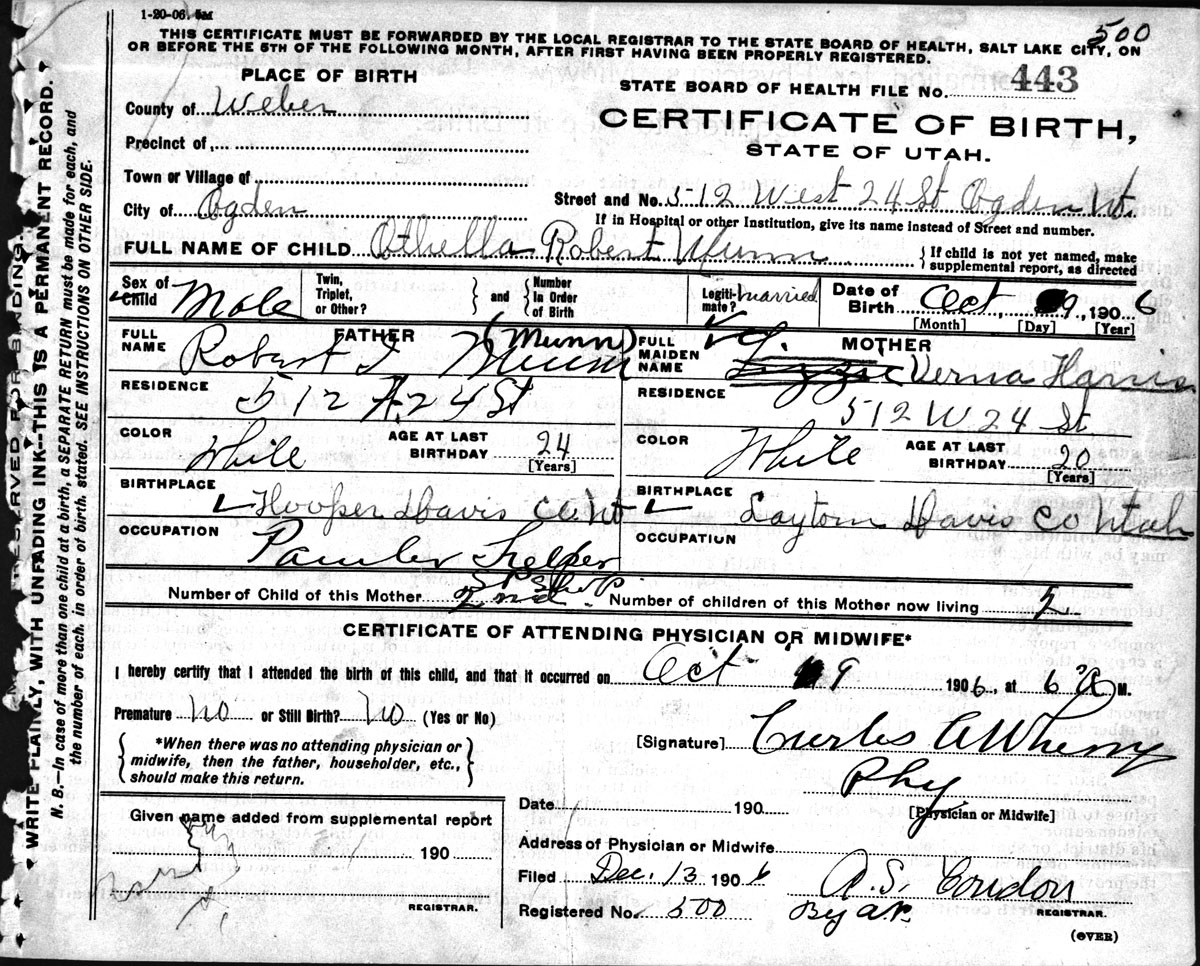 1-20-06. 5M
500
THIS CERTIFICATE MUST BE FORWARDED BY THE LOCAL REGISTRAR TO THE STATE BOARD OF HEALTH, SALT LAKE CITY, ON
OR BEFORE THE 5TH OF THE FOLLOWING MONTH, AFTER FIRST HAVING BEEN PROPERLY REGISTERED.
PLACE OF BIRTH
STATE BOARD OF HEALTH FILE No. 443
County of Weber
CERTIFICATE OF BIRTH,
Precinct of
STATE OF UTAH.
Town or Village of
Street and No. 512 West 24 St Ogden Ut.
City of Ogden
If in Hospital or other Institution, give its name instead of Street and number.
FULL NAME OF CHILD Othella Robert Munn
If child is not yet named, make supplemental report, as directed
Sex of Child Male
Twin, Triplet, or Other?
and
Number In Order of Birth
Legitimate? married
Date of Birth Oct 9, 1906
[Month] [Day] [Year]
FATHER
FULL NAME Robert I Munn (Munn)
MOTHER
FULL MAIDEN NAME Lizzie Verna Harris
RESIDENCE 512 24 St
RESIDENCE 512 W 24 St.
COLOR White
AGE AT LAST BIRTHDAY 24
[Years]
COLOR White
AGE AT LAST BIRTHDAY 20
[Years]
BIRTHPLACE Hooper Davis Co Ut
BIRTHPLACE Layton Davis Co Utah
OCCUPATION Helper
S P Shop
OCCUPATION
Number of Child of this Mother 2nd. Number of children of this Mother now living
CERTIFICATE OF ATTENDING PHYSICIAN OR MIDWIFE*
I hereby certify that I attended the birth of this child, and that it occurred on Oct 9 1906, at 6 30 A M.
Premature No or Still Birth? No (Yes or No)
*When there was no attending physician or midwife, then the father, householder, etc., should make this return.
[Signature] Curtis A Wherry
Phy
[Physician or Midwife]
Date 190
Given name added from supplemental report
190
REGISTRAR.
Address of Physician or Midwife
Filed Dec. 13 1906
A. S. Condon
REGISTRAR.
Registered No. 500
By
(OVER)
MARGIN RESERVED FOR BINDING.
WRITE PLAINLY, WITH UNFADING INK--THIS IS A PERMANENT RECORD.
N. B.—In case of more than one child at a birth, a SEPARATE RETURN must be made for each, and
the number of each, in order of birth, stated. SEE INSTRUCTIONS ON OTHER SIDE.